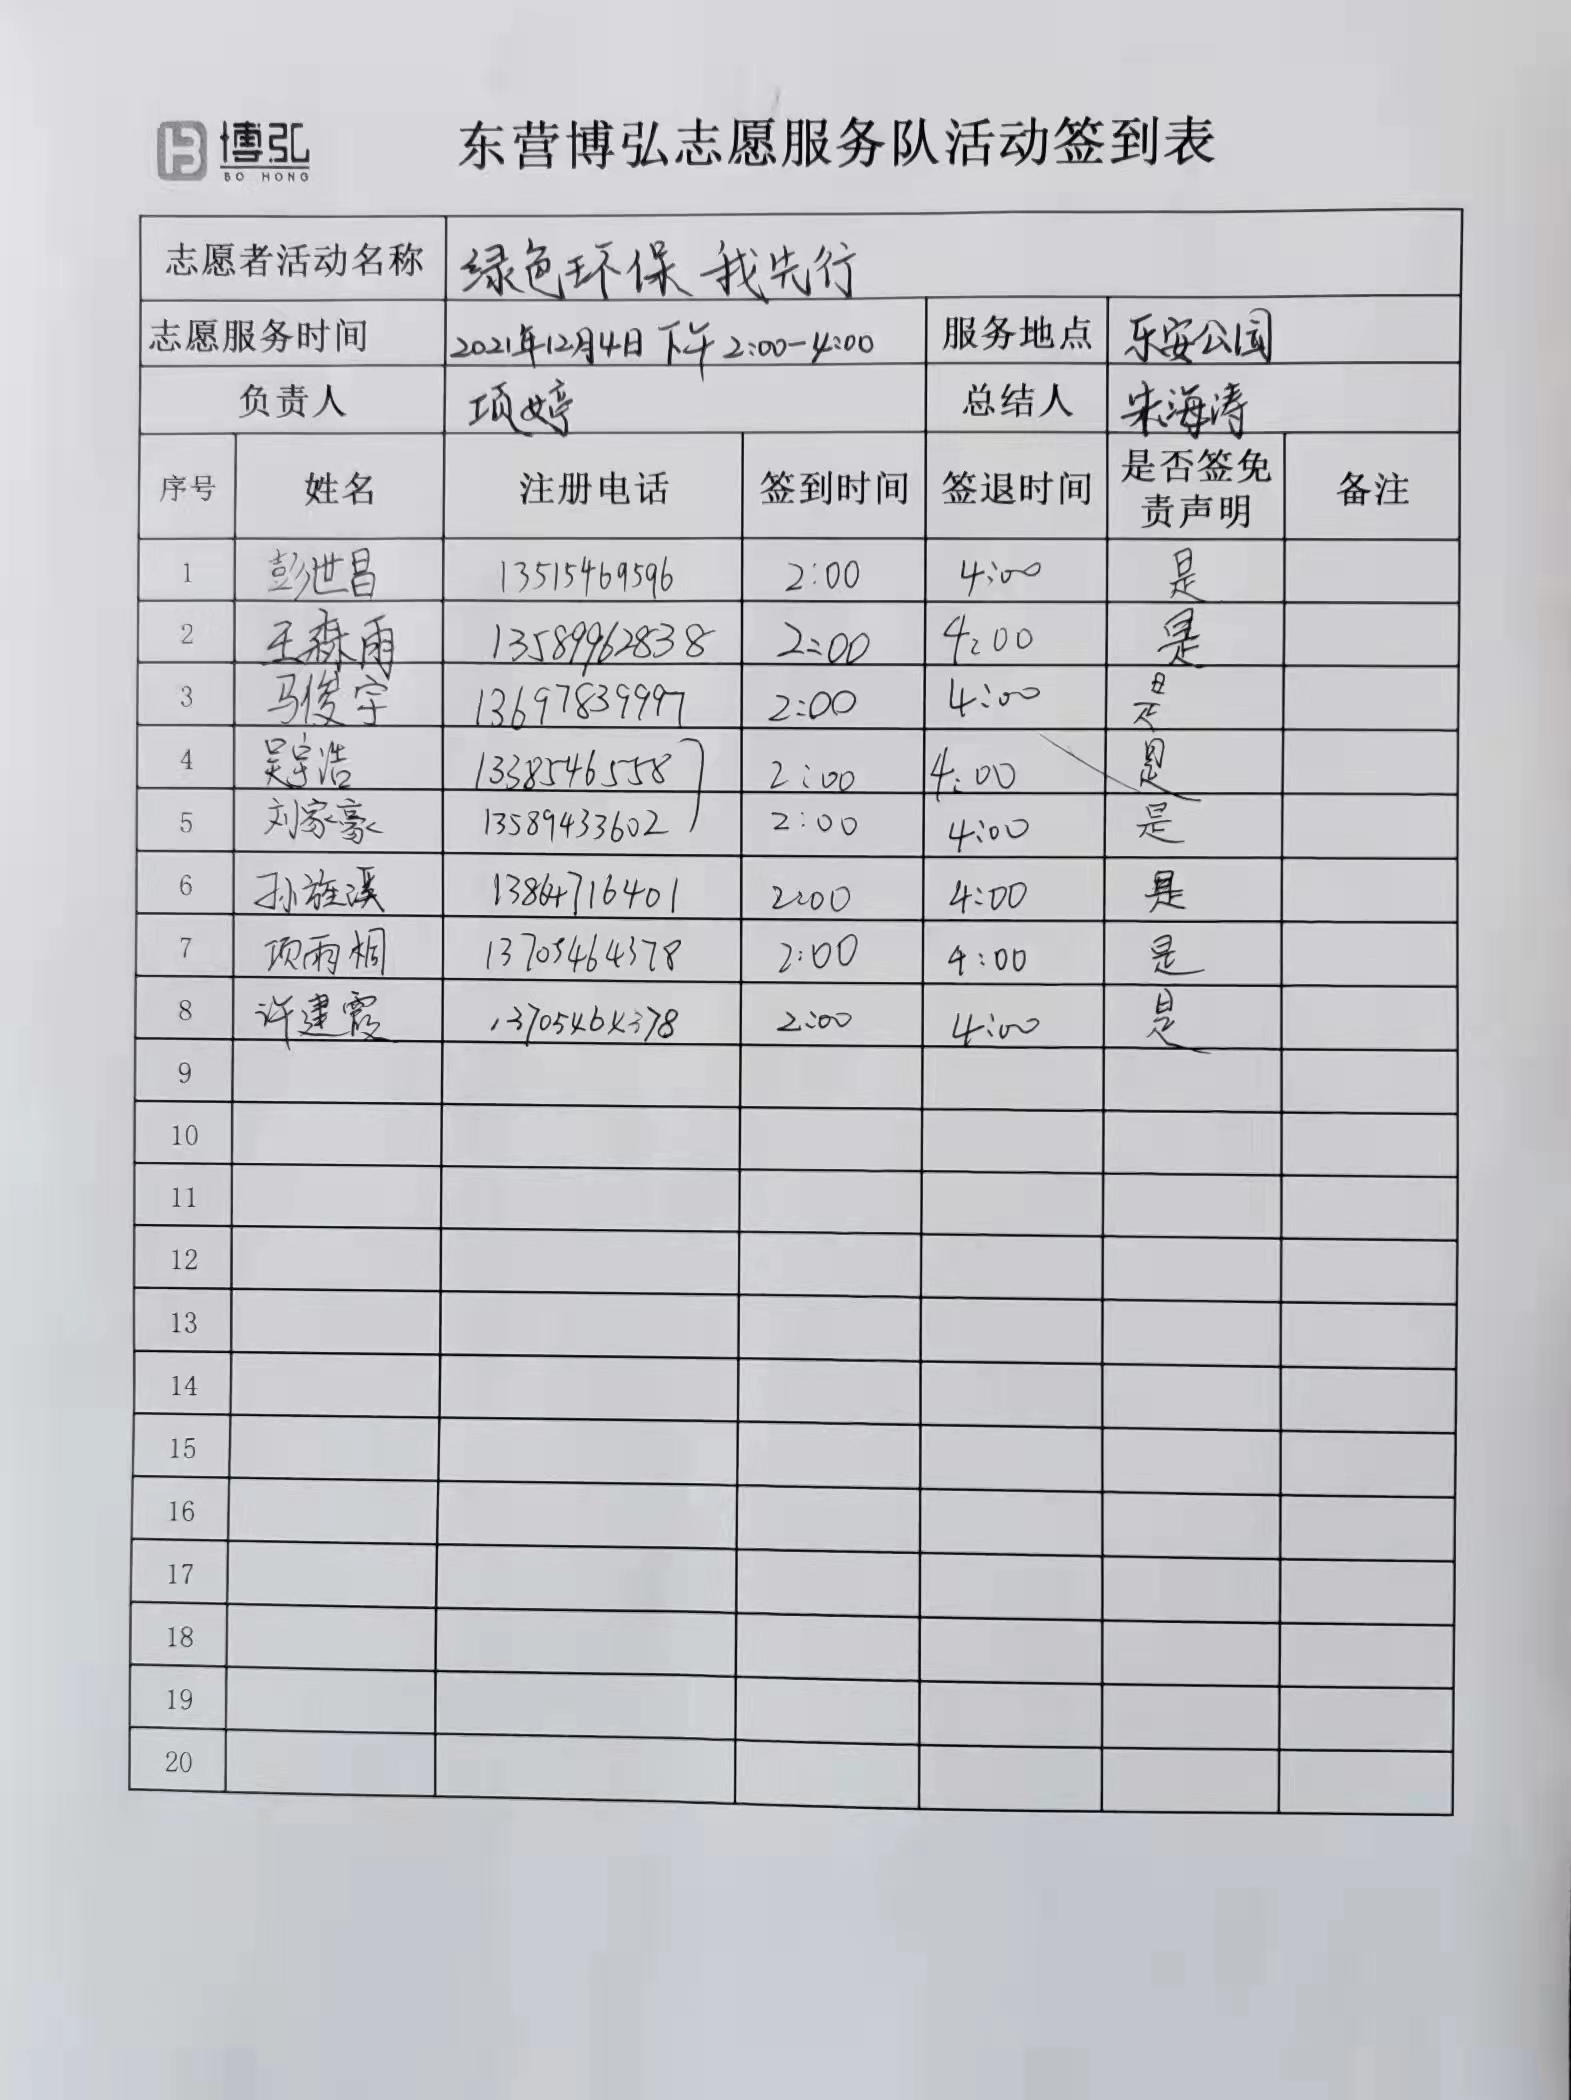 博弘
BO HONG
东营博弘志愿服务队活动签到表
志愿者活动名称 绿色环保 我先行
志愿服务时间 2021年12月4日 下午 2:00-4:00 服务地点 乐安公园
负责人 项婷 总结人 朱海涛
序号 姓名 注册电话 签到时间 签退时间 是否签免责声明 备注
1 彭世昌 13515469596 2:00 4:00 是
2 王森雨 13589962838 2:00 4:00 是
3 马俊宇 13697839997 2:00 4:00 是
4 吴宇浩 1338546558 2:00 4:00 是
5 刘家豪 13589433602 2:00 4:00 是
6 孙旌溪 13864716401 2:00 4:00 是
7 项雨桐 13705464378 2:00 4:00 是
8 许建霞 13705464378 2:00 4:00 是
9
10
11
12
13
14
15
16
17
18
19
20